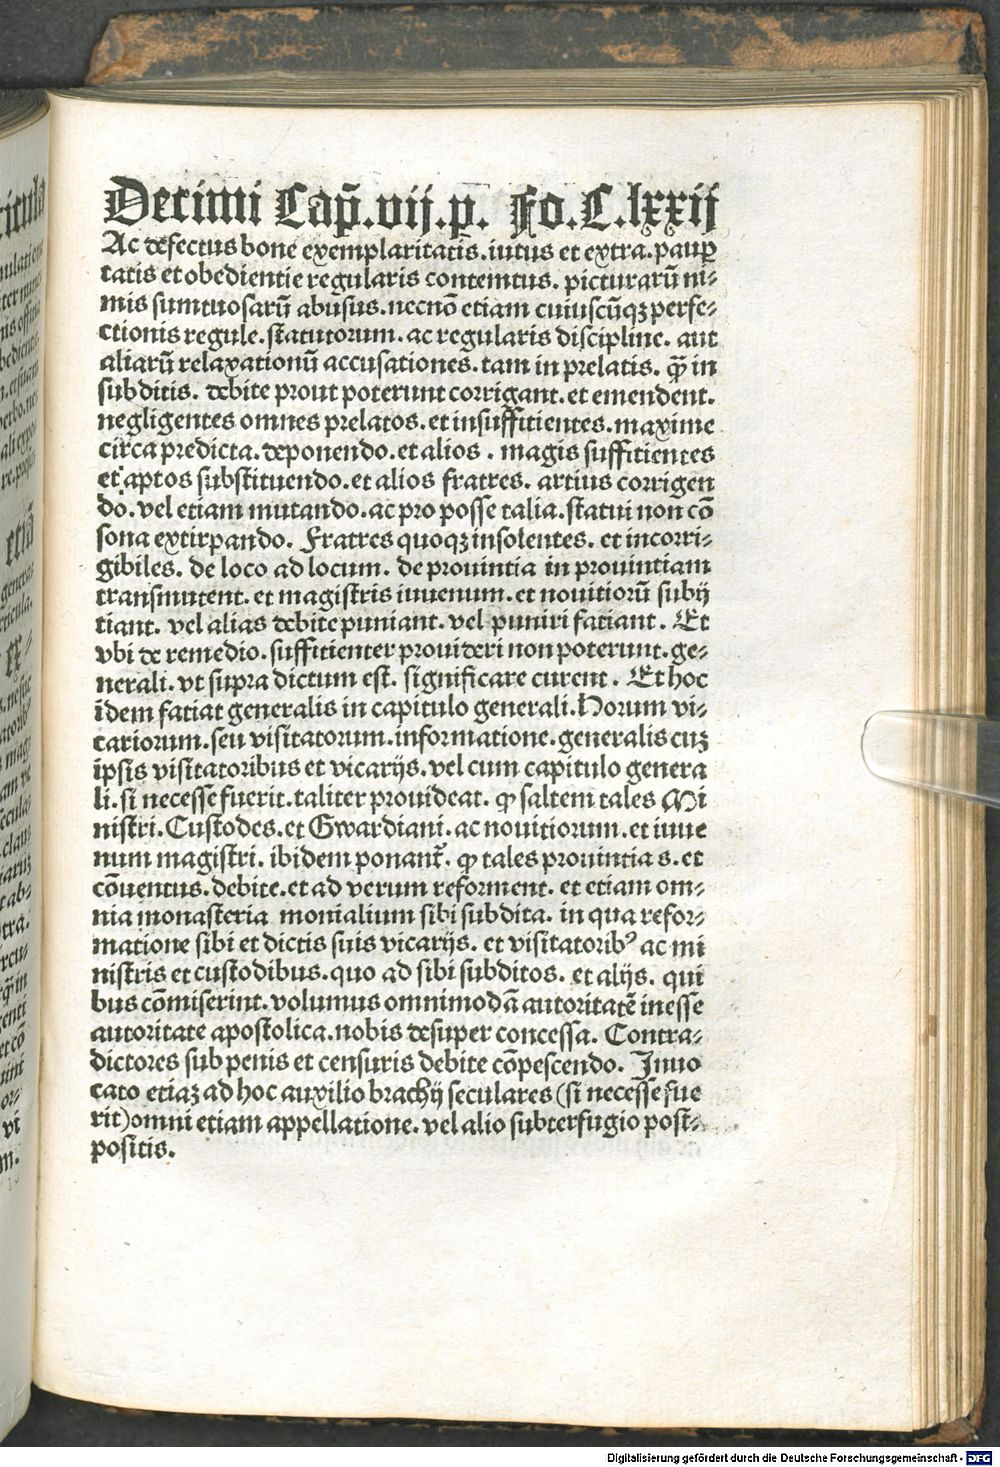 Decimi Cap̃.vij.p. Fo.C.lxxij
Ac defectus bone exemplaritatis.iutus et extra.paup̱
tatis et obedientie regularis contemtus. picturarū ni⸗
mis sumtuosarū abusus.necnō etiam cuiuscūqꝫ perfe⸗
ctionis regule.statutorum.ac regularis discipline. aut
aliarū relaxationū accusationes.tam in prelatis. ꝙ̃ in
subditis. debite prout poterunt corrigant.et emendent.
negligentes omnes prelatos.et insuffitientes.maxime
circa predicta.deponendo.et alios. magis suffitientes
et aptos substituendo.et alios fratres. artius corrigen
do.vel etiam mutando.ac pro posse talia.statui non cō
sona extirpando. Fratres quoqꝫ insolentes. et incorri⸗
gibiles. de loco ad locum. de prouintia in prouintiam
transmutent.et magistris iuuenum.et nouitiorū subij
tiant. vel alias debite puniant. vel puniri fatiant. Et
vbi de remedio.suffitienter prouideri non poterunt.ge⸗
nerali.vt supra dictum est. significare curent. Et hoc
idem fatiat generalis in capitulo generali.Horum vi⸗
cariorum.seu visitatorum.informatione.generalis cuꝫ
ipsis visitatoribus et vicarijs.vel cum capitulo genera
li.si necesse fuerit.taliter prouideat. ꝙ saltem tales Mi
nistri.Custodes.et Gwardiani.ac nouitiorum.et iuue
num magistri. ibidem ponant᷑. ꝙ tales prouintias.et
cōuentus.debite.et ad verum reforment. et etiam om⸗
nia monasteria monialium sibi subdita. in qua refor⸗
matione sibi et dictis suis vicarijs. et visitatoribꝰ ac mi
nistris et custodibus.quo ad sibi subditos. et alijs. qui
bus cōmiserint.volumus omnimodā autoritatē inesse
autoritate apostolica.nobis desuper concessa. Contra⸗
dictores sub penis et censuris debite cōpescendo. Inuo
cato etiaꝫ ad hoc auxilio brachij seculares (si necesse fue
rit)omni etiam appellatione.vel alio subterfugio post⸗
positis.
Digitalisierung gefördert durch die Deutsche Forschungsgemeinschaft - DFG